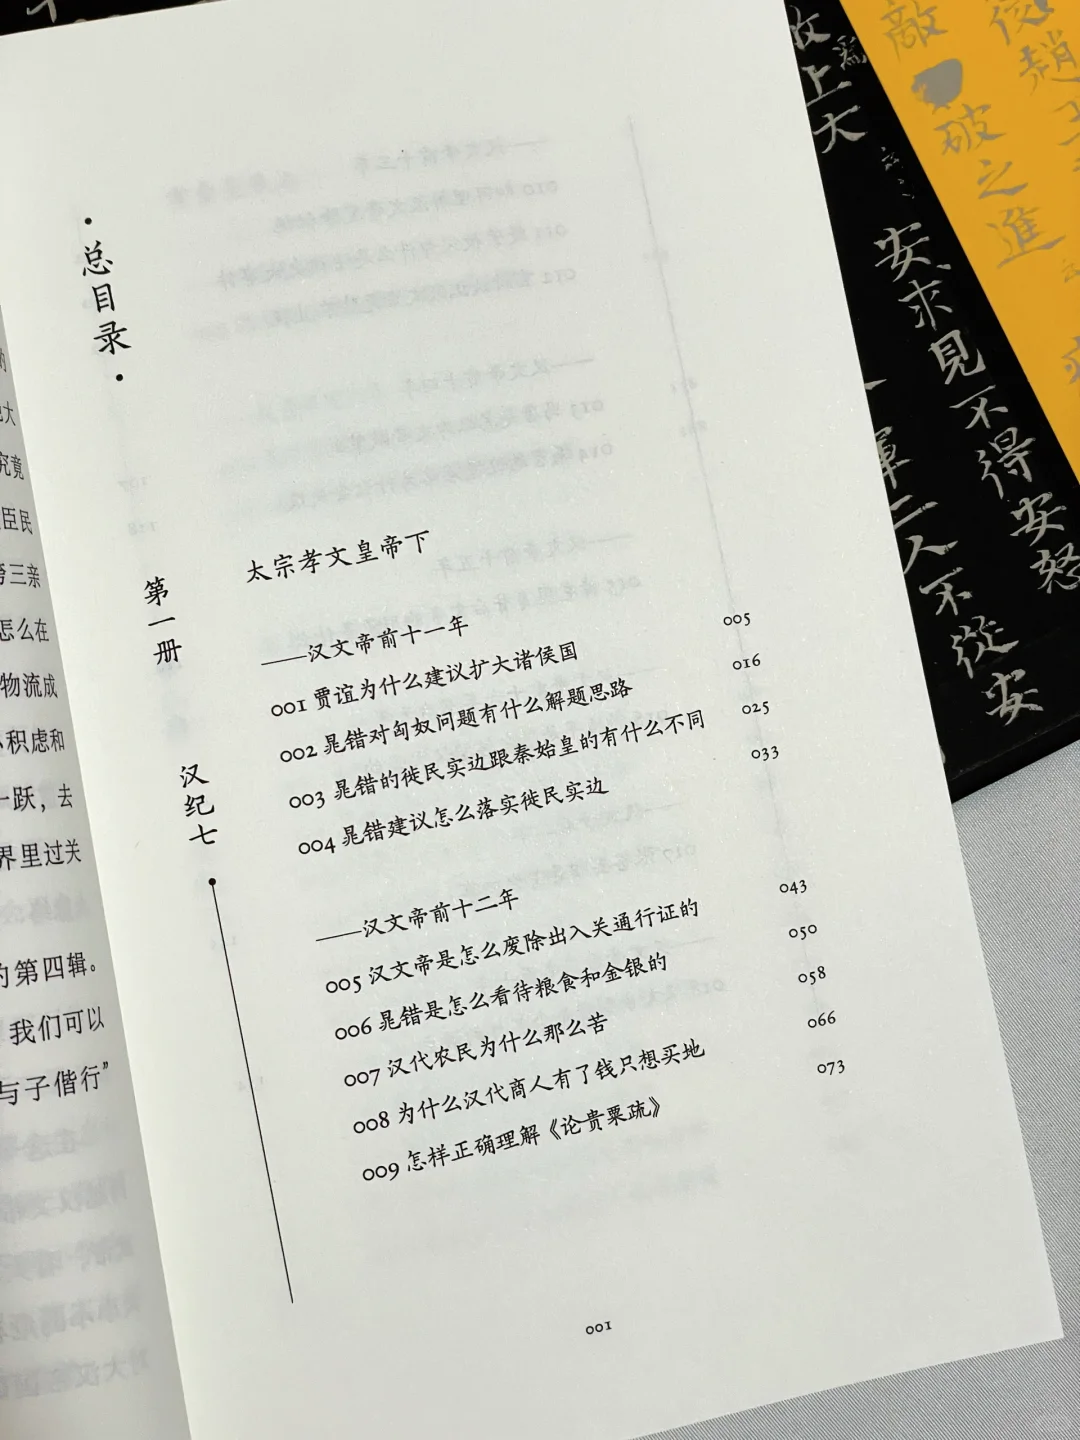 总目录
第一册
汉纪七
太宗孝文皇帝下
——汉文帝前十一年
001 贾谊为什么建议扩大诸侯国 005
002 晁错对匈奴问题有什么解题思路 016
003 晁错的徙民实边跟秦始皇的有什么不同 025
004 晁错建议怎么落实徙民实边 033
——汉文帝前十二年
005 汉文帝是怎么废除出入关通行证的 043
006 晁错是怎么看待粮食和金银的 050
007 汉代农民为什么那么苦 058
008 为什么汉代商人有了钱只想买地 066
009 怎样正确理解《论贵粟疏》 073
001
究竟
臣民
三亲
怎么在
物流成
积虑和
一跃，去
界里过关
的第四辑。
我们可以
与子偕行”
敵
破之進
後趙
上大
安求見不得安怒
二人不從安